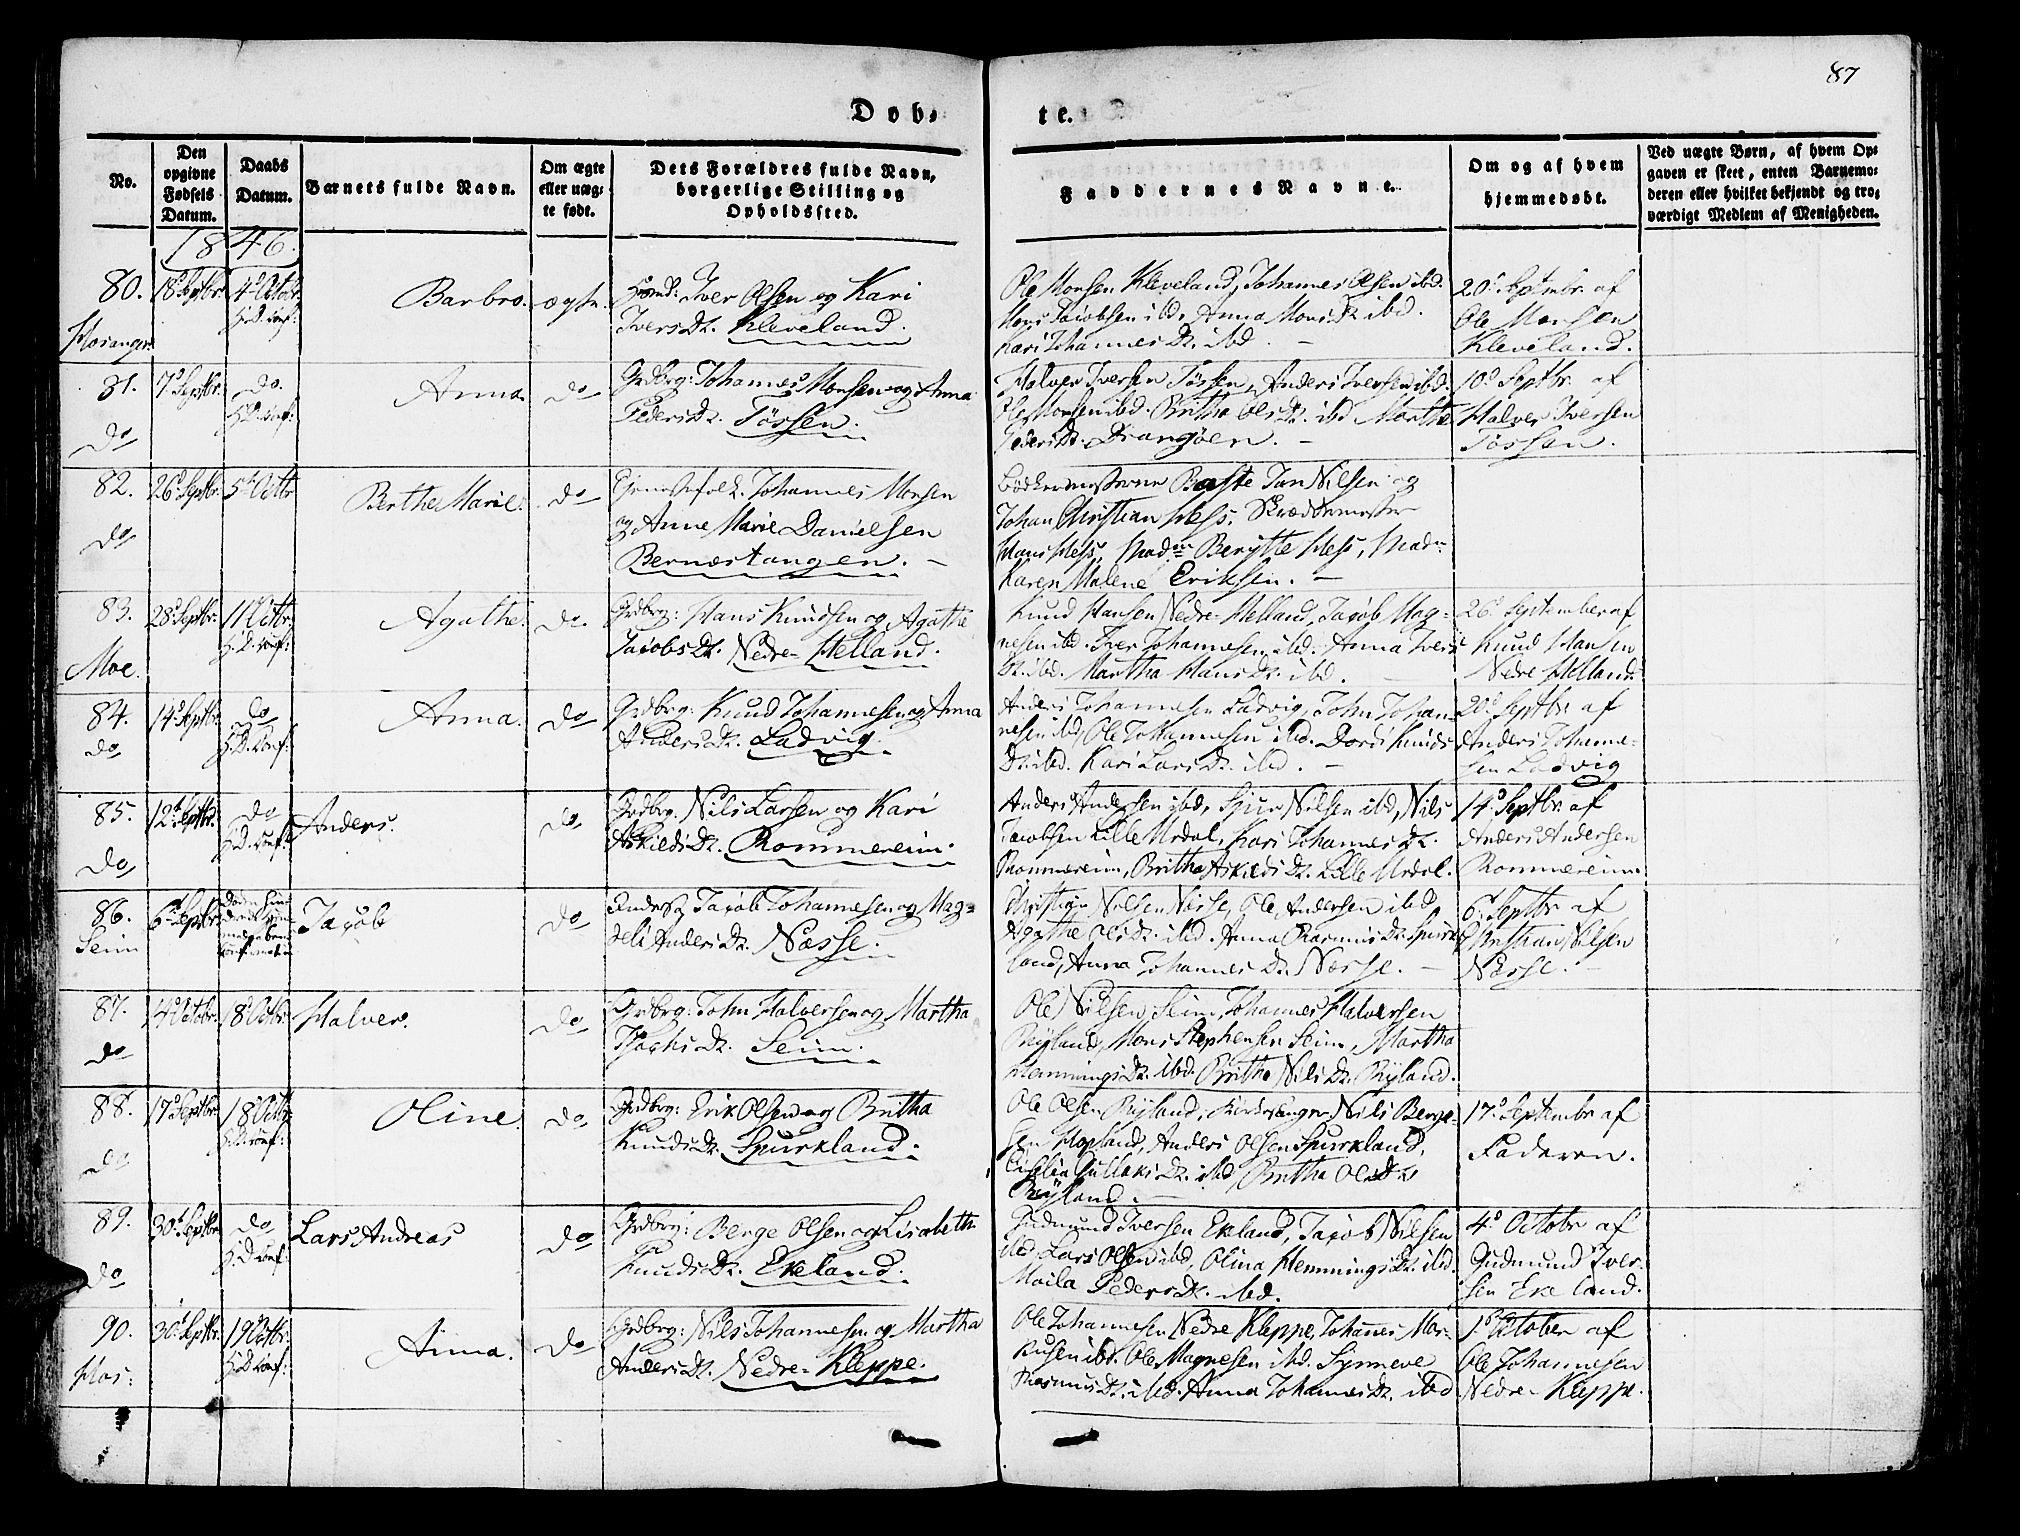 87
Døb-
te.
No.
Den
opgivne
Fødsels
Datum.
Daabs
Datum.
Barnets fulde Navn.
Om ægte
eller uæg-
te født.
Dets Forældres fulde Navn,
borgerlige Stilling og
Opholdssted.
Faddernes Navne.
Om og af hvem
hjemmedøbt.
Ved uægte Børn, af hvem Op-
gaven er skeet, enten Barnemo-
deren eller hvilket bekjendt og tro-
værdigt Medlem af Menigheden.
1846.
80.
Hosanger
18d Septbr.
4d Octobr.
H: D. Conf:
Barbro.
ægte.
Iver Olsen og Kari
Ivers Dt. Kleveland.
Ole Monsen Kleveland, Johannes Olsen ibd.
Mons Jacobsen ibd, Anna Mons Dt ibd.
Kari Johannes Dt. ibd. –
20d Septembr af
Ole Monsen
Kleveland.
81.
do
7d Septbr.
do.
H: D. Conf:
Anna.
do
Grdbrg: Johannes Monsen og Anna
Peders Dt. Tössen.
Halver Iversen Tössen, Anders Iversen ibd.
Ole Monsen ibd. Britha Ols Dt. ibd Marthe
Peders Dt. Drangöen. –
10d Septbr af
Halver Iversen
Tössen.
82.
do
26d Septbr.
5te Octbr
Berthe Marie.
do
Tjenestefolk. Johannes Monsen
og Anne Marie Danielsen
Bernestangen. –
Bødkermesterne Baste Jan Nilsen og
Johan Christian Hess. Skrædermester
Hans Hess, Madm Berythe Hess, Madm
Karen Malene Eriksen. –
83.
Moe.
28d Septbr.
11d Octbr.
H: D. Conf:
Agathe.
do.
Grdbrg: Hans Knudsen og Agathe
Jacobs Dt. Nedre-Helland.
Knud Hansen Nedre-Helland, Jacob Mag-
nesen ibd. Iver Johannesen ibd. Anna Ivers
Dt. ibd. Martha Hans Dt. ibd. –
26d September af
Knud Hansen
Nedre Helland.
84.
do
14d Septbr.
do
H: D. Conf:
Anna.
do
Grdbrg: Knud Johannesen og Anna
Anders Dt. Ladvig.
Anders Johannesen Ladvig, John Johan-
nesen ibd, Ole Johannesen ibd. Dordi Knuds
Dt. ibd. Kari Lars Dt. ibd. –
20d Septbr af
Anders Johanne-
sen Ladvig
85.
do
12te Septbr.
do
H: D. Conf:
Anders.
do
Grdbrg. Nils Larsen og Kari
Askilds Dt. Rommereim.
Anders Andersen ibd, Nilsen ibd, Nils
Jacobsen Lille Urdal, Kari Johannes Dt.
Rommereim, Britha Askilds Dt. Lille Urdal.
14d Septbr af
Anders Andersen
Rommereim
86.
Seim
6te Septbr.
Jacob
do
Jacob Johannesen og Mag-
deli Anders Dt. Næsse.
Christian Nilsen Næsse, Ole Andersen ibd
Agathe Ols Dt. ibd. Anna Rasmus Dt. Spurk-
land, Anna Johannes Dt. Næsse. –
6te Septbr af
Christian Nilsen
Næsse. –
87.
do
14d Octobr.
18d Octbr.
Halver.
do
Grdbrg: John Halversen og Martha
Dt. Seim.
Ole Nilsen Seim, Johannes Halversen
Ryland, Mons Stephensen Seim, Martha
Hemmings Dt. ibd. Britha Nils Dt. Ryland.
88.
do
17d Septbr.
18d Octbr.
H: D. Conf:
Oline.
do
Grdbrg: Erik Olsen og Britha
Knuds Dt. Spurkland.
Ole Olsen Ryland, Kirkesanger Nils Berge-
sen Hopland, Anders Olsen Spurkland,
Ciglia Gullaks Dt. ibd, Britha Ols Dt
Ryland. –
17d Septembr af
Faderen.
89.
do
30d Septbr
do
H: D Conf:
Lars Andreas
do
Grdbrg: Berge Olsen og Lisabeth
Knuds Dt. Ekeland.
Gudmund Iversen Ekeland, Jacob Nilsen
ibd. Lars Olsen ibd, Olina Hemmings Dt. ibd.
Maila Peders Dt. ibd.
4d Octobr af
Gudmund Iver-
sen Ekeland.
90.
Hos:
30d Septbr
19d Octbr.
H: D Conf:
Anna.
do
Grdbrg: Nils Johannesen og Martha
Anders Dt. Nedre-Kleppe.
Ole Johannesen Nedre Kleppe, Johannes Mar-
kusen ibd. Ole Magnesen ibd. Synneve
Rasmus Dt. ibd. Anna Johannes Dt. ibd
1d October af
Ole Johannesen
Nedre-Kleppe.